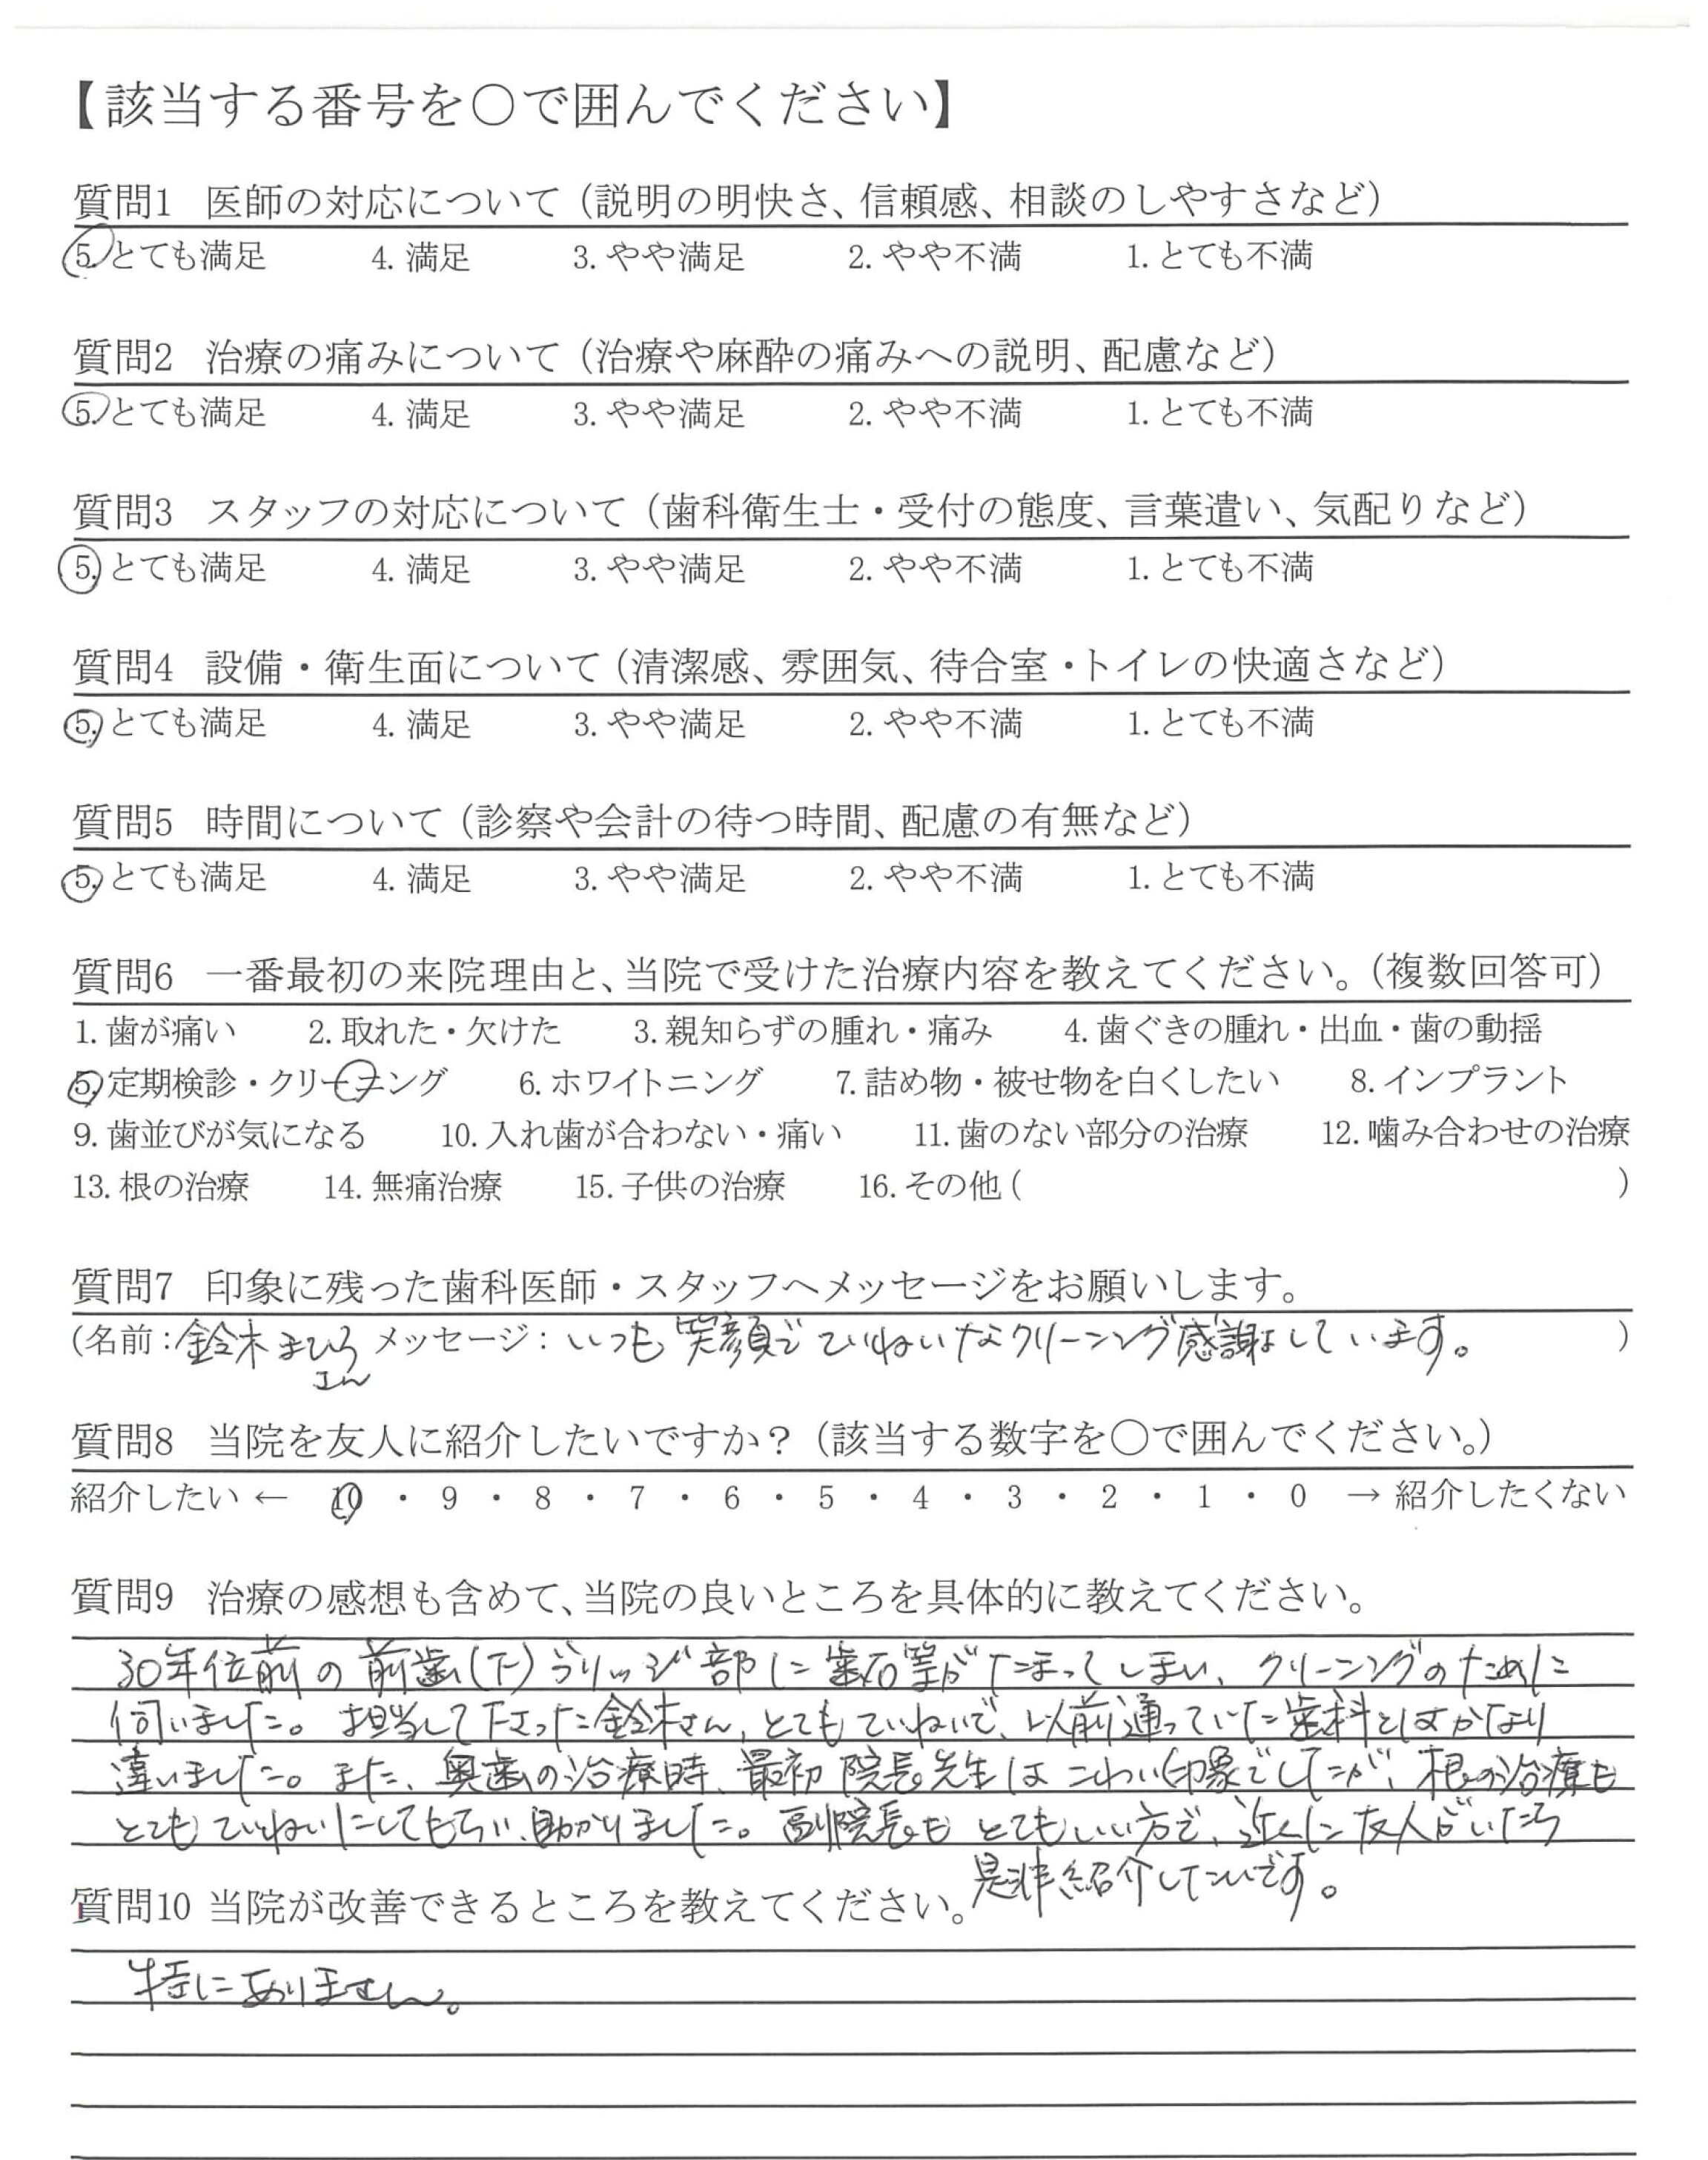 【該当する番号を○で囲んでください】
質問1 医師の対応について（説明の明快さ、信頼感、相談のしやすさなど）
5. とても満足 4. 満足 3. やや満足 2. やや不満 1. とても不満
質問2 治療の痛みについて（治療や麻酔の痛みへの説明、配慮など）
5. とても満足 4. 満足 3. やや満足 2. やや不満 1. とても不満
質問3 スタッフの対応について（歯科衛生士・受付の態度、言葉遣い、気配りなど）
5. とても満足 4. 満足 3. やや満足 2. やや不満 1. とても不満
質問4 設備・衛生面について（清潔感、雰囲気、待合室・トイレの快適さなど）
5. とても満足 4. 満足 3. やや満足 2. やや不満 1. とても不満
質問5 時間について（診察や会計の待つ時間、配慮の有無など）
5. とても満足 4. 満足 3. やや満足 2. やや不満 1. とても不満
質問6 一番最初の来院理由と、当院で受けた治療内容を教えてください。（複数回答可）
1. 歯が痛い 2. 取れた・欠けた 3. 親知らずの腫れ・痛み 4. 歯ぐきの腫れ・出血・歯の動揺
5. 定期検診・クリーニング 6. ホワイトニング 7. 詰め物・被せ物を白くしたい 8. インプラント
9. 歯並びが気になる 10. 入れ歯が合わない・痛い 11. 歯のない部分の治療 12. 噛み合わせの治療
13. 根の治療 14. 無痛治療 15. 子供の治療 16. その他（ ）
質問7 印象に残った歯科医師・スタッフへメッセージをお願いします。
（名前：鈴木まひろさん メッセージ：いつも笑顔でていねいなクリーニング感謝しています。）
質問8 当院を友人に紹介したいですか？（該当する数字を○で囲んでください。）
紹介したい ← 10 ・ 9 ・ 8 ・ 7 ・ 6 ・ 5 ・ 4 ・ 3 ・ 2 ・ 1 ・ 0 → 紹介したくない
質問9 治療の感想も含めて、当院の良いところを具体的に教えてください。
30年位前の前歯（下）ブリッジ部に歯石等がたまってしまい、クリーニングのために
伺いました。担当して下さった鈴木さん、とてもていねいで、以前通っていた歯科とはかなり
違いました。また、奥歯の治療時、最初院長先生はこわい印象でしたが、根の治療も
とてもていねいにしてもらい、助かりました。副院長もとてもいい方で、近くに友人がいたら
是非紹介したいです。
質問10 当院が改善できるところを教えてください。
特にありません。